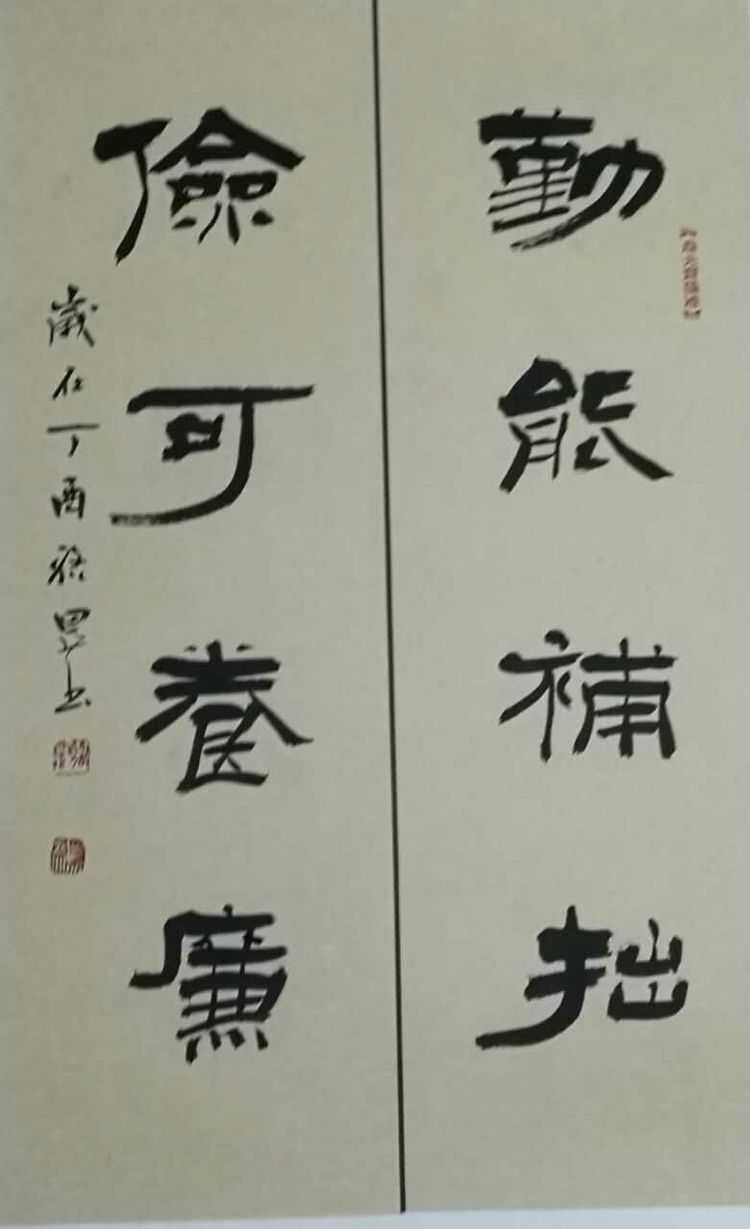 勤能補拙
儉可養廉
歲在丁酉